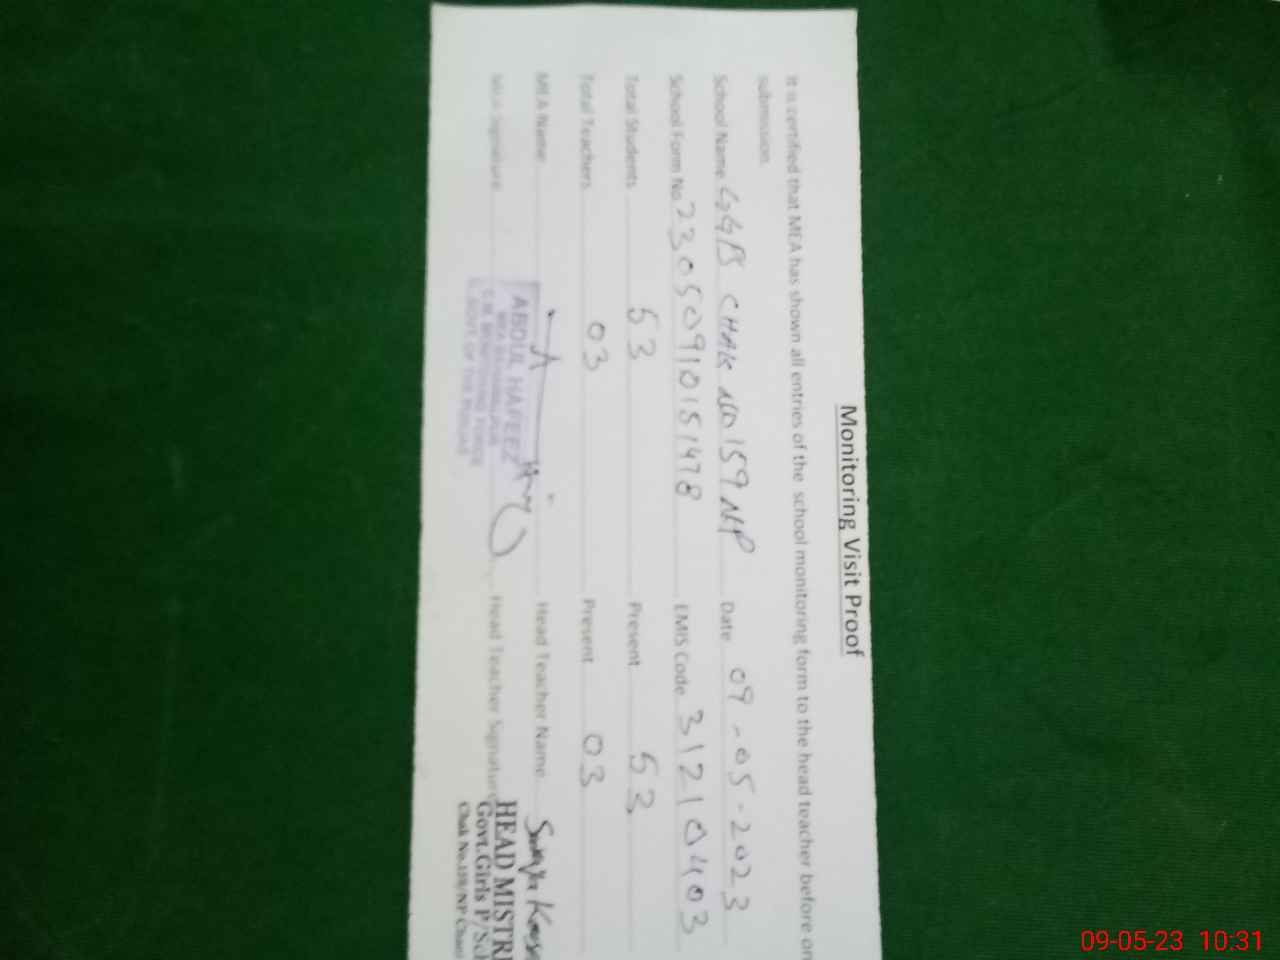 Monitoring Visit Proof
It is certified that MEA has shown all entries of the school monitoring form to the head teacher before on
submission.
School Name GGPS CHAK NO 159 NP Date 09-05-2023
School Form No 23050910151478 EMIS Code 31210403
Total Students 53 Present 53
Total Teachers 03 Present 03
MEA Name Head Teacher Name
MEA Signature Head Teacher Signature
ABDUL HAFEEZ
C.M. MONITORING FORCE
GOVT. OF THE PUNJAB
HEAD MISTR
Govt.Girls P/Sch
Chak No.159/NP
09-05-23 10:31